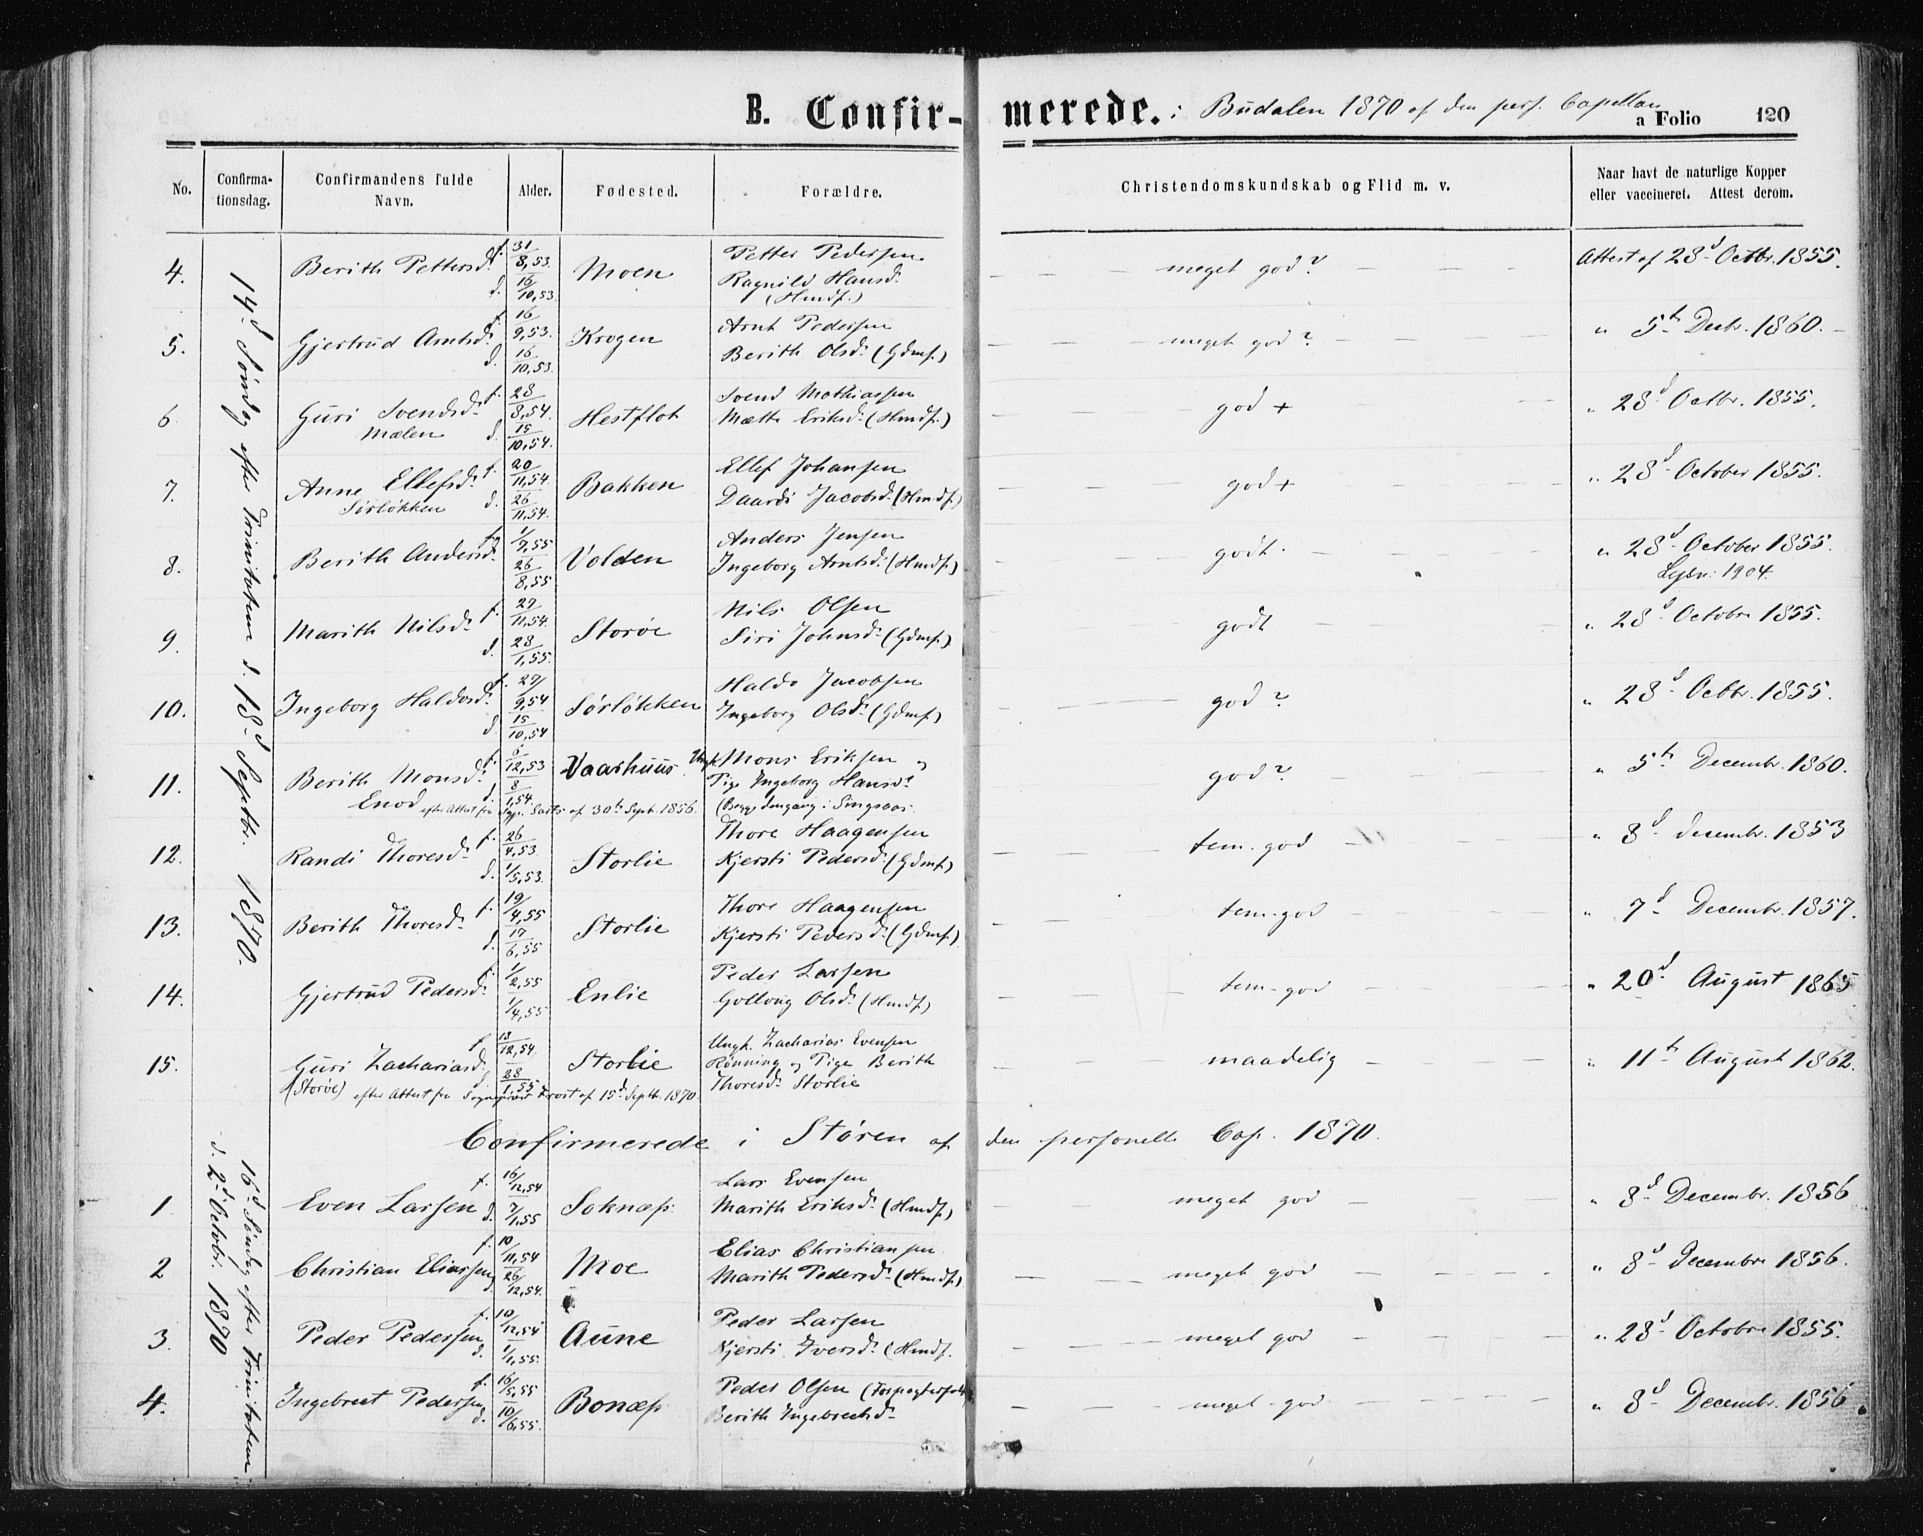 B. Confirmerede. i Budalen 1870 af den pers. Capellan
a Folio 120
No. | Confirmationsdag. | Confirmandens fulde Navn. | Alder. | Fødested. | Forældre. | Christendomskundskab og Flid m. v. | Naar havt de naturlige Kopper eller vaccineret. Attest derom.
14d Søndag efter Trinitatem d. 18d Septbr. 1870.
4. Berith Pettersd. f. 31/8,53. d. 16/10,53. Moen Petter Pedersen Ragnild Hansd. (Hmdf.) meget god? Attest af 28d Octbr. 1855.
5. Gjertrud Arntsd. f. 16/9,53. d. 16/10,53. Krogen Arnt Pedersen Berith Olsd. (Gdmf.) meget god? " 5te Decbr. 1860.
6 Guri Svendsd. Mælen f. 28/8,54. d. 15/10,54. Hestflot Svend Mathiassen Mætte Eriksd. (Hmdf.) god + " 28d Octbr. 1855.
7. Anne Ellefsd. Sørløkken f. 20/11,54. d. 26/11,54. Bakken Ellef Johansen Daardi Jacobsd. (Hmdf.) god + " 28d October 1855.
8. Berith Andersd. 1/7,55 26/8,55 Volden Anders Jensen Ingeborg Arntsd. (Hmdf.) godt. " 28d October 1855.
1904.
9. Marith Nilsd. f. 29/11,54. d. 28/1,55. Storøe Nils Olsen Siri Johnsd. (Gdmf.) godt " 28d Octobr. 1855.
10. Ingeborg Haldosd. f. 29/9,54 d. 15/10,54 Sørløkken Haldo Jacobsen Ingeborg Olsd. (Gdmf.) god? " 28d Octbr. 1855.
11. Berith Monsd. Enod f. 5/12,53 d. 8/1,54. Vaarhuus Ungk. Mons Eriksen og Pige Ingeborg Hansd. (Begge dengang i Singsaas. god? " 5te Decembr. 1860.
efter Attest fra Sgpr. af 30te Septb. 1856.
12. Randi Thoresd. f. 26/4,53 d. 1/5,53. Storlie Thore Haagensen Kjersti Pedersd. (Gdmf.) tem. god " 8d Decembr. 1853
13. Berith Thoresd. f. 19/4,55 d. 17/6,55 Storlie Thore Haagensen Kjersti Pedersd. (Gdmf.) tem-god " 7d Decembr. 1857.
14. Gjertrud Pedersd. f. 1/2,55 1/4,55 Enlie Peder Larsen Gollaug Olsd. (Hmdf.) tem-god " 20d August 1865
15. Guri Zachariasd. (Storøe) f. 13/12,54. d. 28/1,55 Storlie Ungk. Zacharias Evensen Rønning og Pige Berith Thoresd. Storlie maadelig " 11te August 1862.
efter Attest fra Sogneprest af 15d Septb. 1870.
Confirmerede i Støren af den personelle Cap. 1870.
16d Søndag efter Trinitatem d. 2d Octobr. 1870
1 Even Larsen f. 16/12,54 d. 7/1,55 Soknæs Lars Evensen Marith Eriksd. (Hmdf.) meget god " 8d Decembr. 1856
2 Christian Eliassen f. 10/11,54 d. 26/12,54. Moe Elias Christiansen Marith Pedersd. (Hmdf.) meget god " 8d Decembr. 1856.
3. Peder Pedersen f. 10/12,54 d. 1/1,55. Aune Peder Larsen Kjersti Iversd. (Hmdf. meget god " 28d Octobr. 1855.
4. Ingebret Pedersen f. 16/5,55 d. 10/6,55. Bonæs Peder Olsen (Forpagterfolk) Berith Ingebrechtsd. meget god " 8d Decembr. 1856